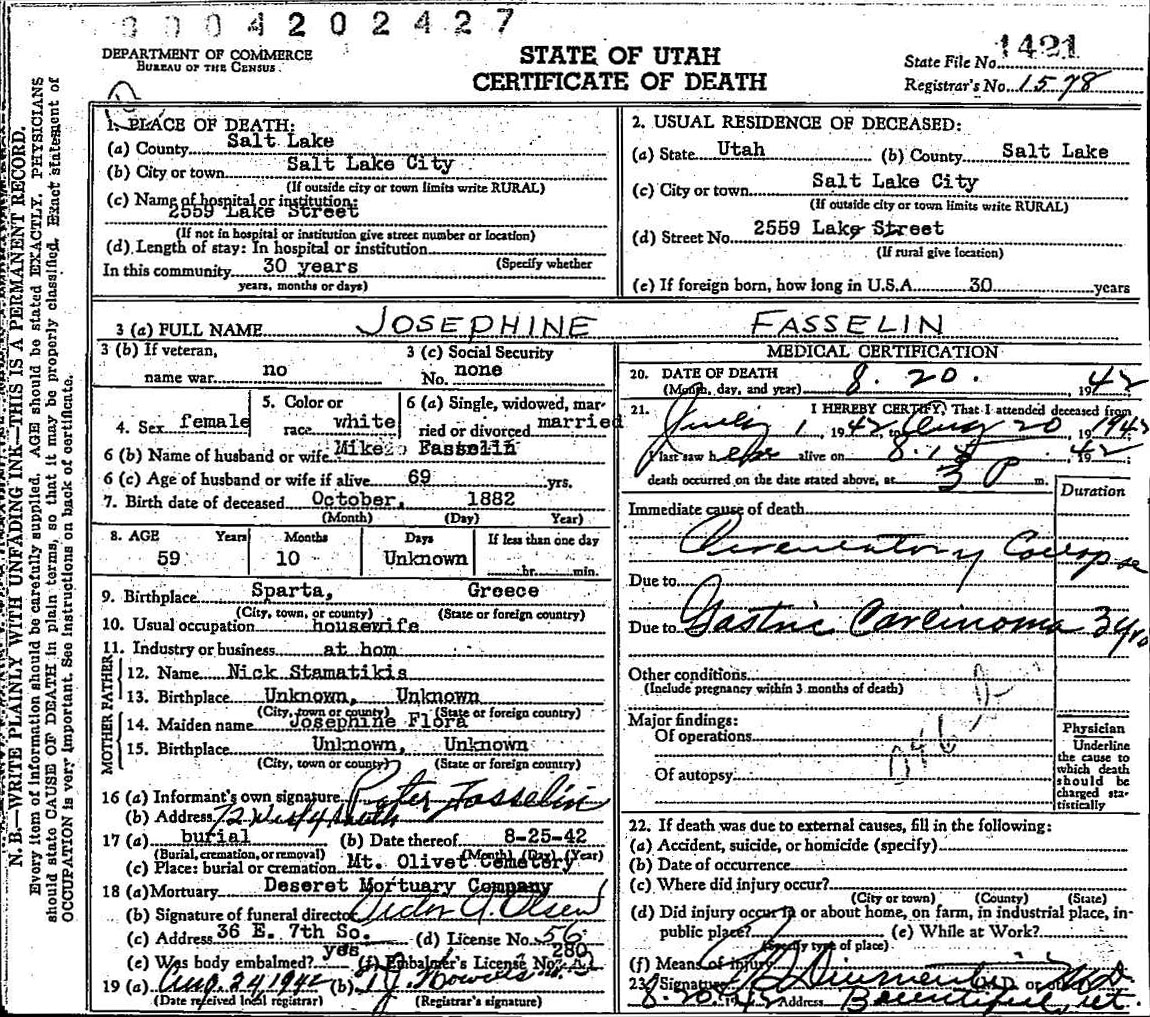 0004202427
DEPARTMENT OF COMMERCE
BUREAU OF THE CENSUS
STATE OF UTAH
CERTIFICATE OF DEATH
State File No. 1421
Registrar's No. 1578
N.B.—WRITE PLAINLY WITH UNFADING INK—THIS IS A PERMANENT RECORD.
Every item of information should be carefully supplied. AGE should be stated EXACTLY. PHYSICIANS
should state CAUSE OF DEATH in plain terms, so that it may be properly classified. Exact statement of
OCCUPATION is very important. See instructions on back of certificate.
1. PLACE OF DEATH:
(a) County Salt Lake
(b) City or town Salt Lake City
(If outside city or town limits write RURAL)
(c) Name of hospital or institution:
2559 Lake Street
(If not in hospital or institution give street number or location)
(d) Length of stay: In hospital or institution
(Specify whether
In this community 30 years
years, months or days)
2. USUAL RESIDENCE OF DECEASED:
(a) State Utah (b) County Salt Lake
(c) City or town Salt Lake City
(If outside city or town limits write RURAL)
(d) Street No. 2559 Lake Street
(If rural give location)
(e) If foreign born, how long in U.S.A. 30 years
3 (a) FULL NAME JOSEPHINE FASSELIN
3 (b) If veteran, name war no
3 (c) Social Security No. none
4. Sex female
5. Color or race white
6 (a) Single, widowed, married or divorced married
6 (b) Name of husband or wife Mike Fasselin
6 (c) Age of husband or wife if alive 69 yrs.
7. Birth date of deceased October, 1882
(Month) (Day) Year)
8. AGE Years Months Days If less than one day
59 10 Unknown hr. min.
9. Birthplace Sparta, Greece
(City, town, or county) (State or foreign country)
10. Usual occupation housewife
11. Industry or business at hom
FATHER
12. Name Nick Stamatikis
13. Birthplace Unknown, Unknown
(City, town or county) (State or foreign country)
MOTHER
14. Maiden name Josephine Flora
15. Birthplace Unknown, Unknown
(City, town or county) (State or foreign country)
16 (a) Informant's own signature Peter Fasselin
(b) Address 72 West 4 South
17 (a) burial (b) Date thereof 8-25-42
(Burial, cremation, or removal) (Month) (Day) (Year)
(c) Place: burial or cremation Mt. Olivet Cemetery
18 (a) Mortuary Deseret Mortuary Company
(b) Signature of funeral director Victor A. Olsen
(c) Address 36 E. 7th So. (d) License No. 56
(e) Was body embalmed? yes (f) Embalmer's License No. 280
19 (a) Aug. 24, 1942 (b)
(Date received local registrar) (Registrar's signature)
MEDICAL CERTIFICATION
20. DATE OF DEATH
(Month, day, and year) 8. 20. , 1942
21. I HEREBY CERTIFY, That I attended deceased from
July 1, 1942, to Aug 20, 19 1942
I last saw her alive on 8.18 , 1942
death occurred on the date stated above, at 3 P m.
Duration
Immediate cause of death
Circulatory Collapse
Due to
Due to Gastric Carcinoma 3 yrs
Other conditions
(Include pregnancy within 3 months of death)
Major findings:
Of operations
Of autopsy
Physician
Underline
the cause to
which death
should be
charged sta-
tistically
22. If death was due to external causes, fill in the following:
(a) Accident, suicide, or homicide (specify)
(b) Date of occurrence
(c) Where did injury occur?
(City or town) (County) (State)
(d) Did injury occur in or about home, on farm, in industrial place, in-
public place? (e) While at Work?
(Specify type of place)
(f) Means of injury
23. Signature M.D. or other MD
8.20.1942 Address Bountiful, Ut.